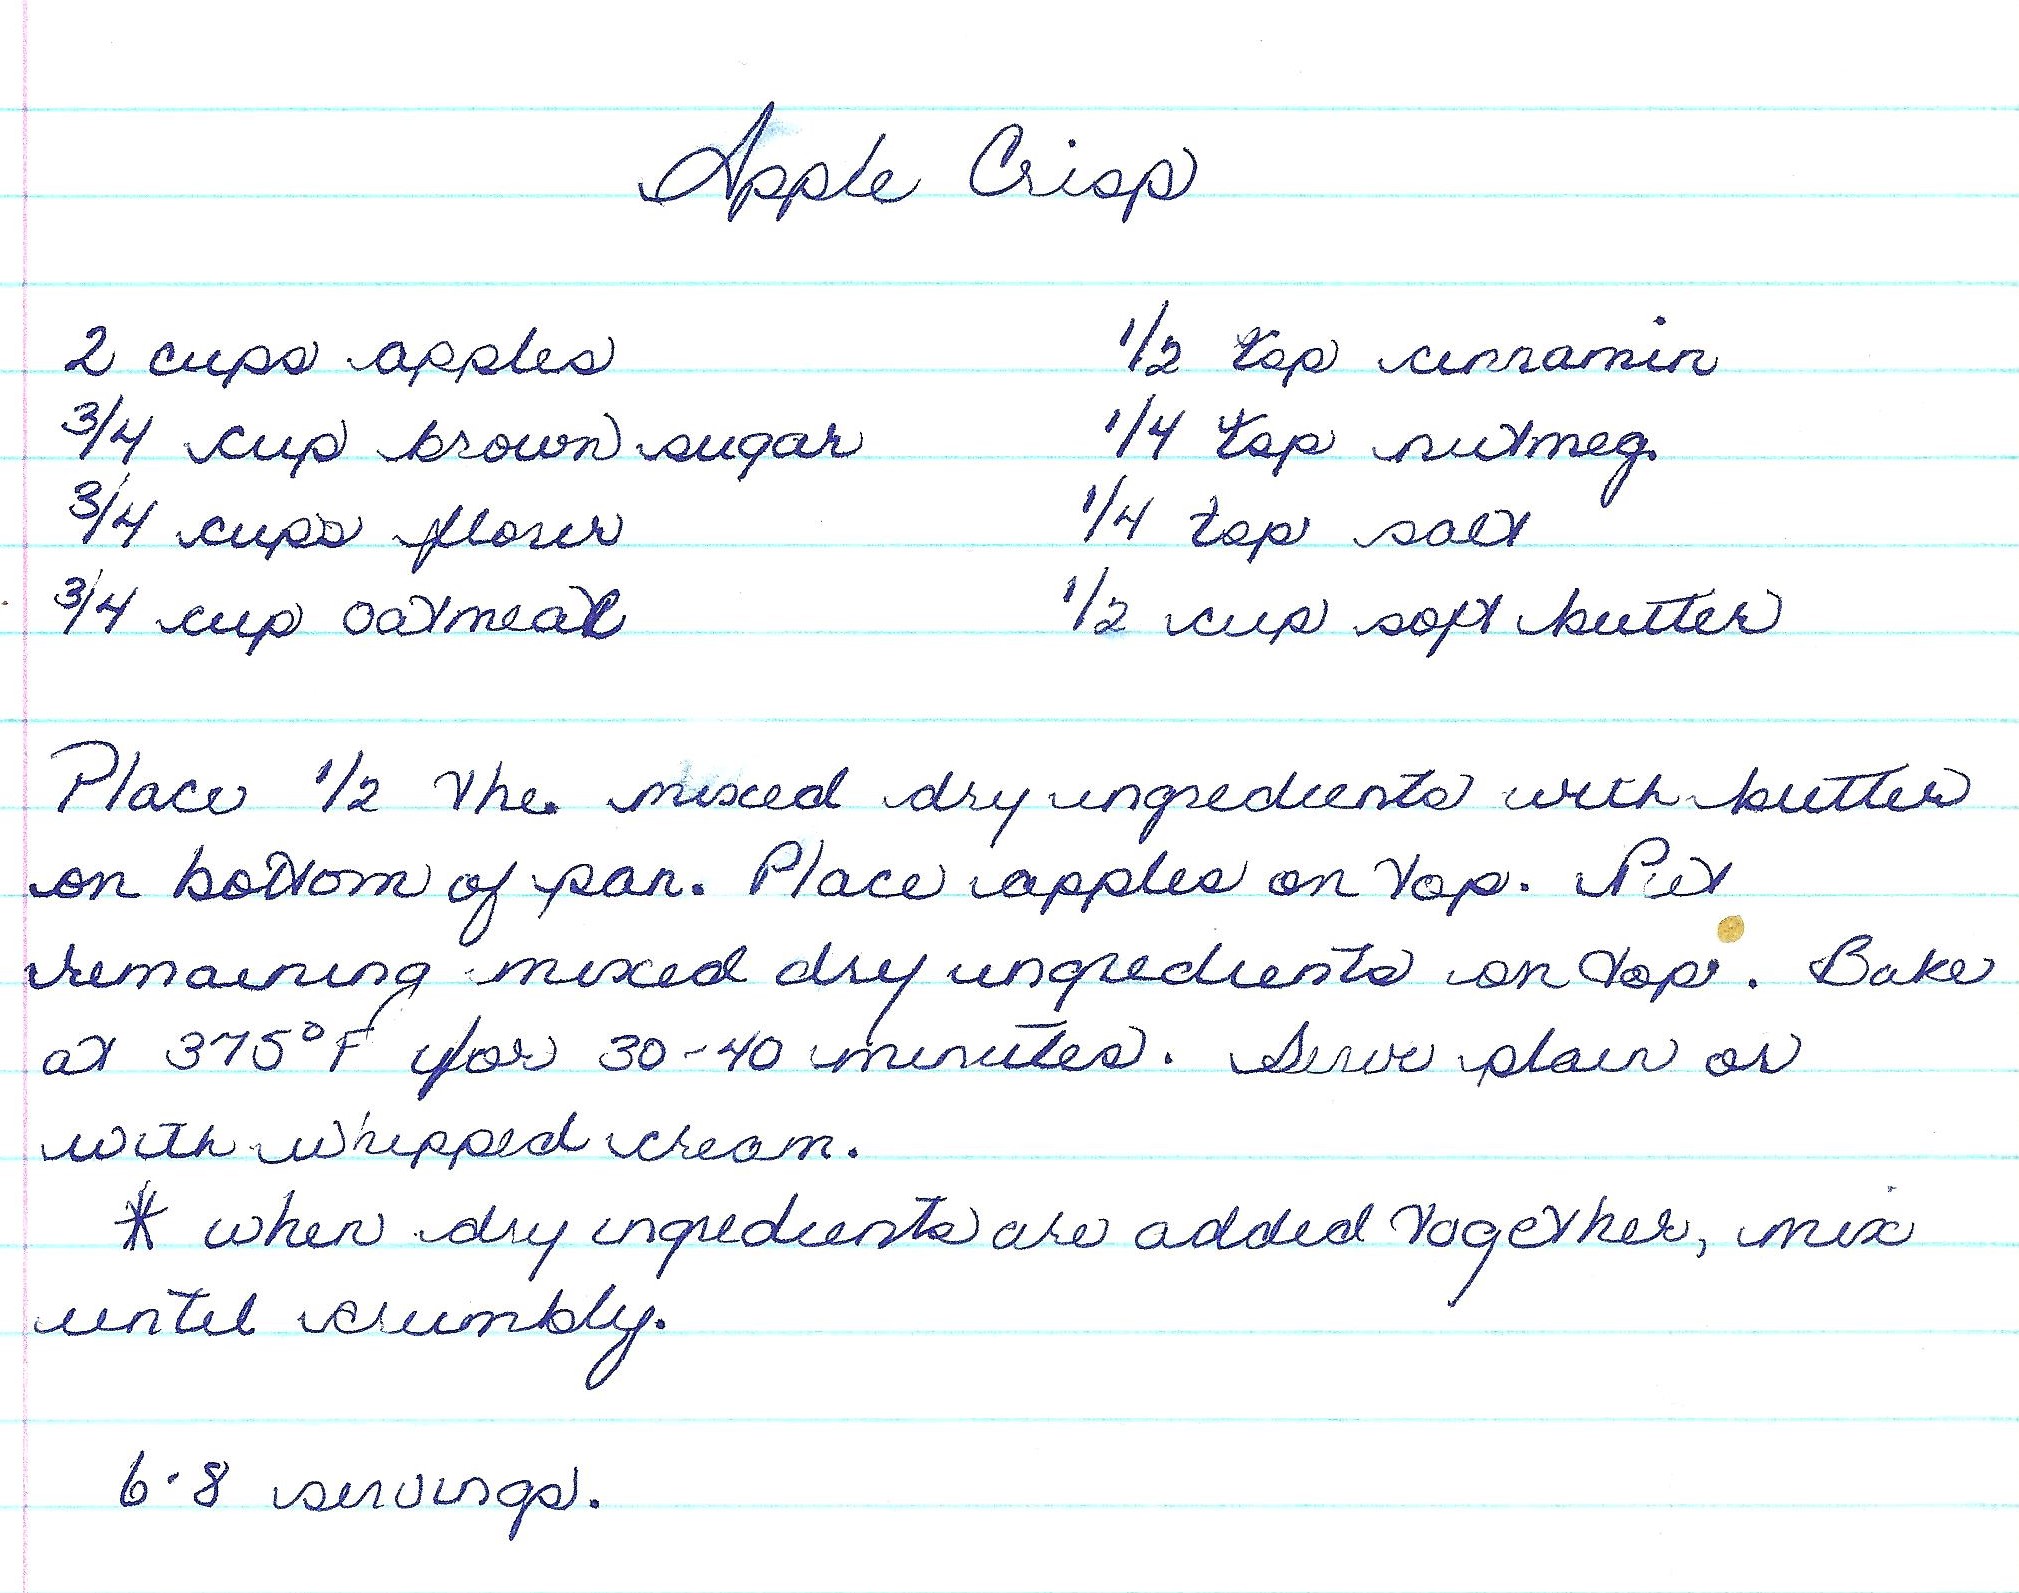 Apple Crisp
2 cups apples 1/2 tsp cinnamin
3/4 cup brown sugar 1/4 tsp nutmeg.
3/4 cups flour 1/4 tsp salt
3/4 cup oatmeal 1/2 cup soft butter
Place 1/2 the mixed dry ingredients with butter
on bottom of pan. Place apples on top. Put
remaining mixed dry ingredients on top. Bake
at 375°F for 30-40 minutes. Serve plain or
with whipped cream.
* when dry ingredients are added together, mix
until crumbly.
6-8 servings.